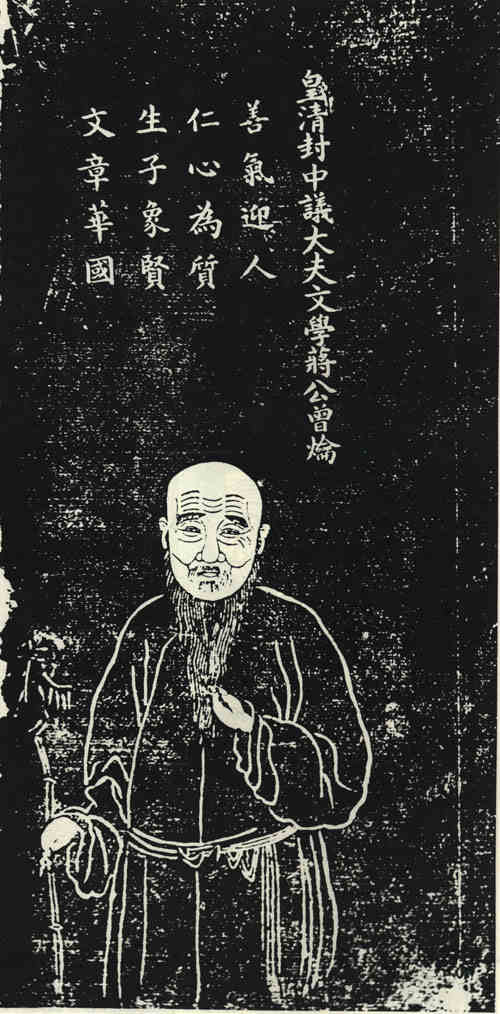 皇清封中議大夫文學蔣公曾爚
善氣迎人
仁心為質
生子象賢
文章華國